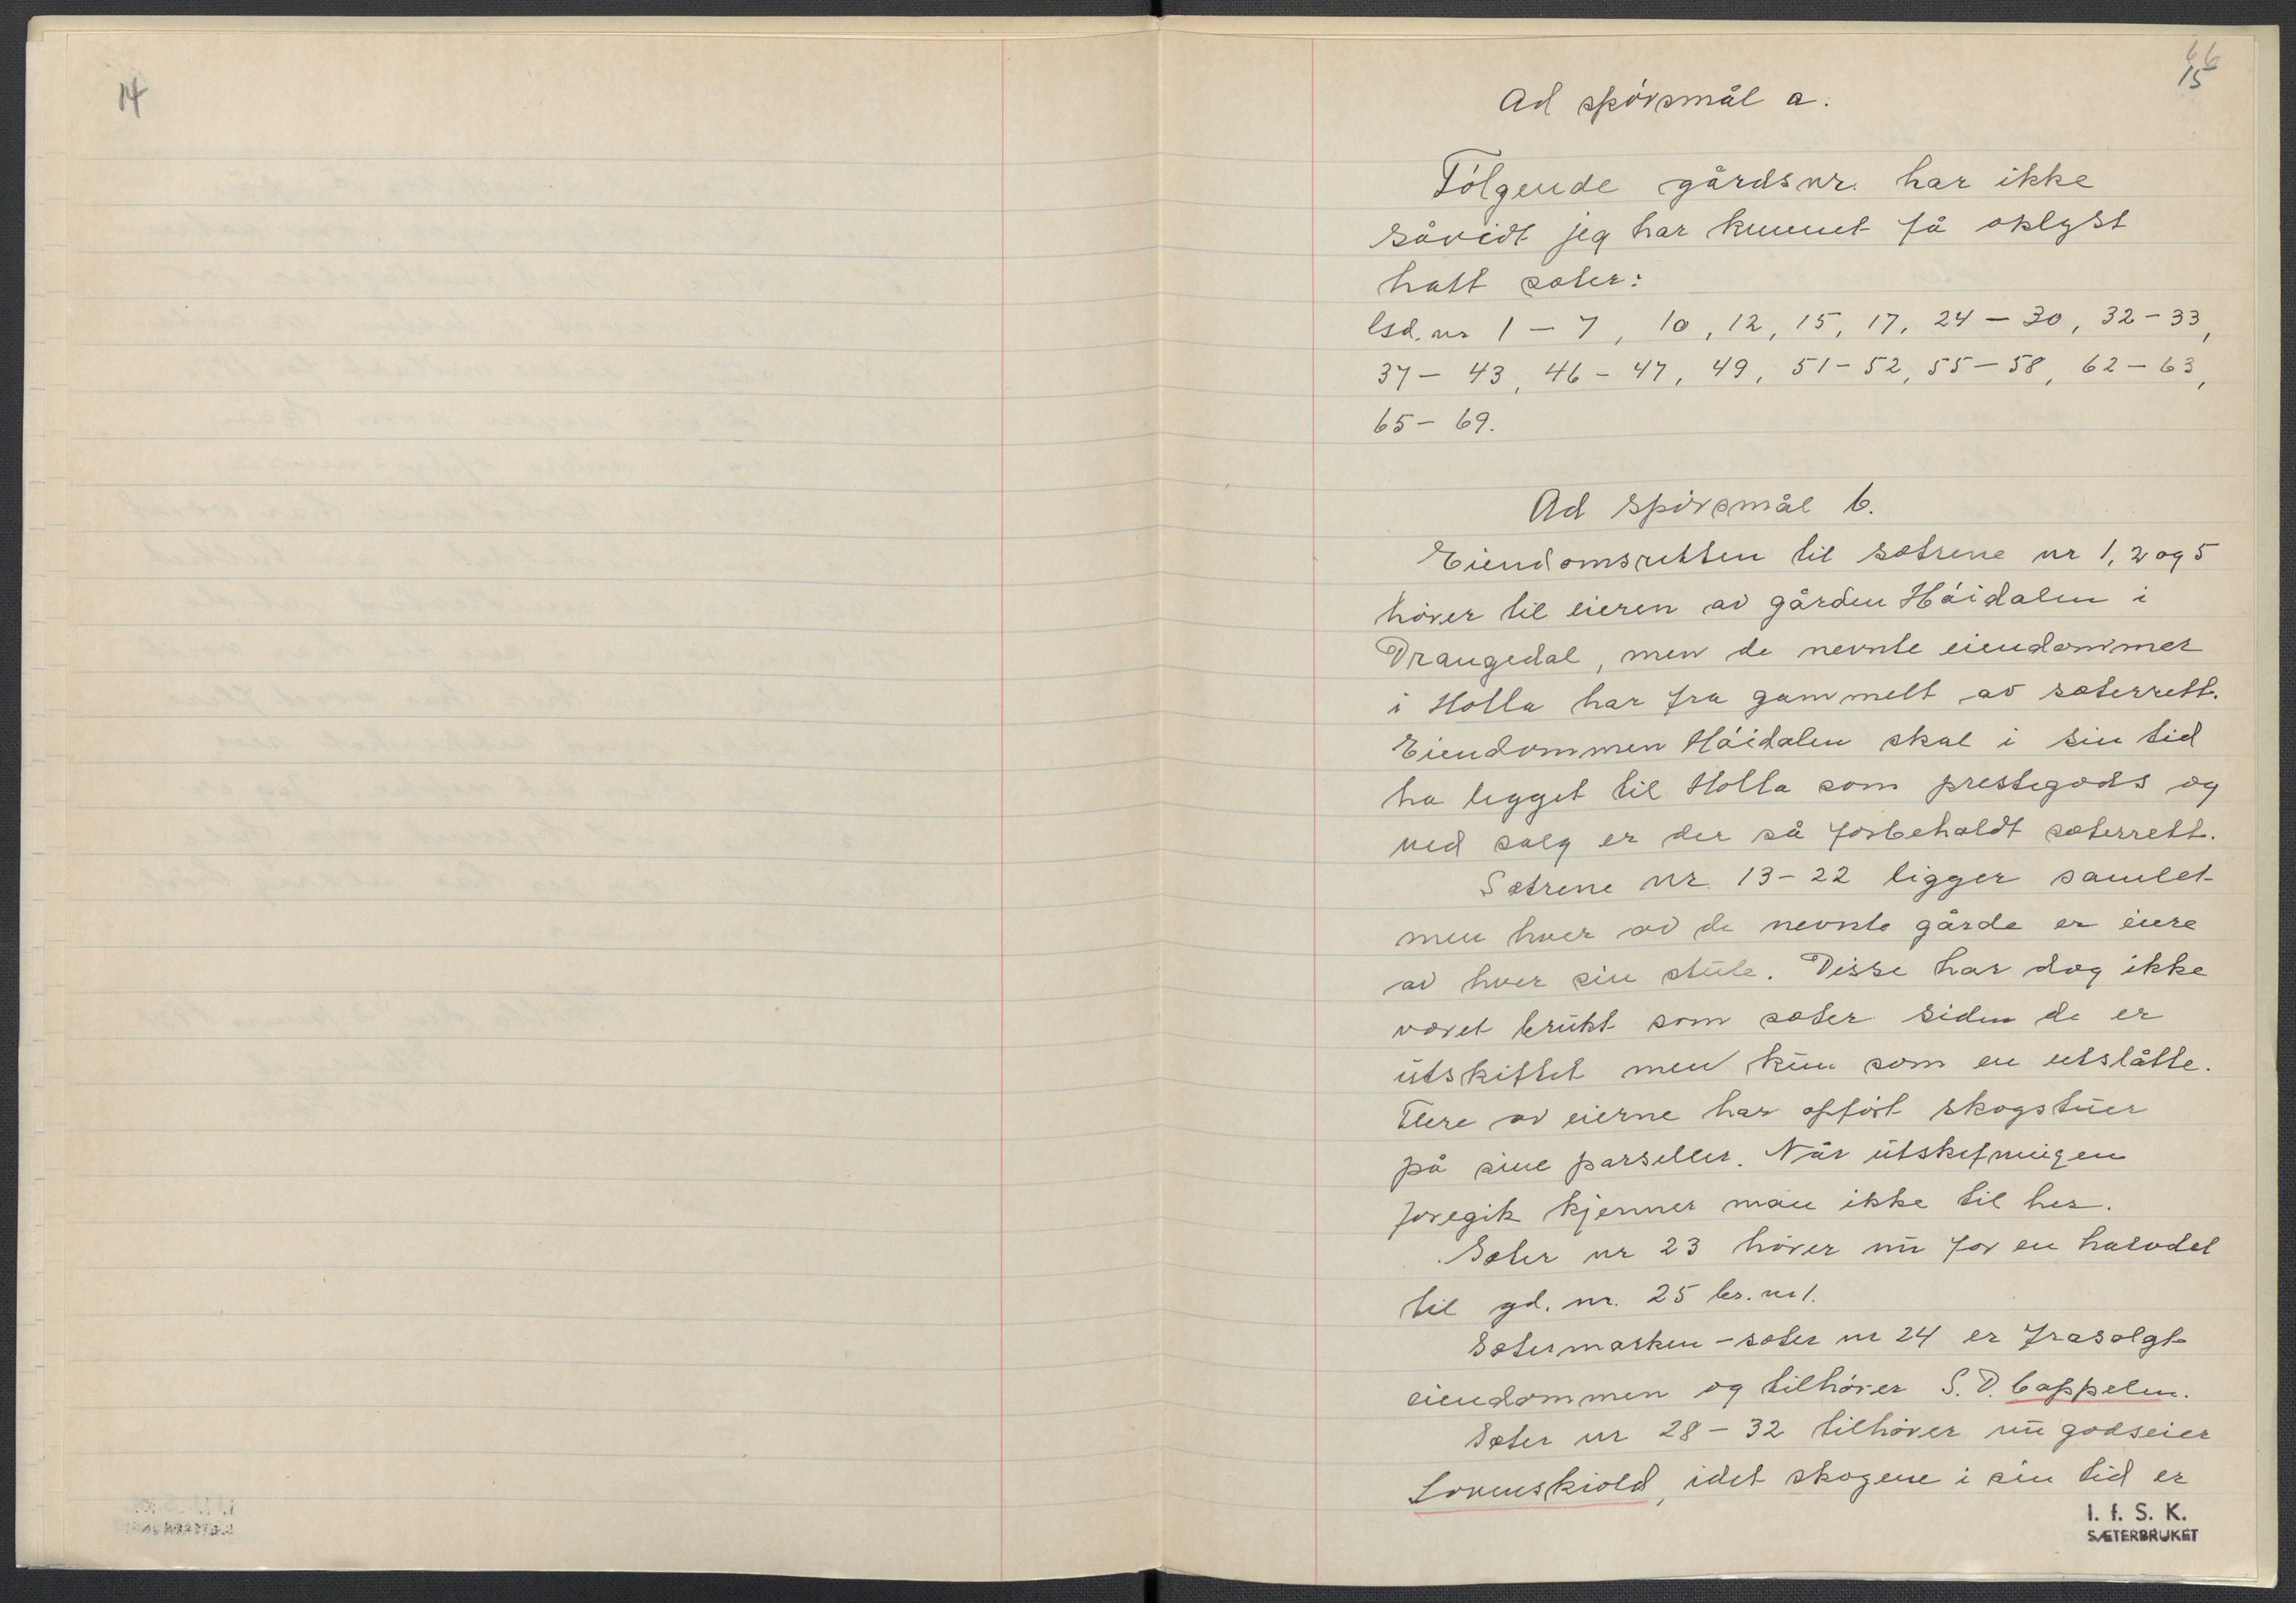 14
66
15
Ad spórsmål a.
Følgende gårdsnr. har ikke
såvidt jeg har kunnet få oplyst
hatt sæter:
Gd. nr 1-7, 10, 12, 15, 17, 24-30, 32-33,
37-43, 46-47, 49, 51-52, 55-58, 62-63,
65-69.
Ad spórsmål b.
Eiendomsretten til sætrene nr 1, 2 og 5
hører til eieren av gården Hóidalen i
Drangedal, men de nevnte eiendommer
i Holla har fra gammelt av sæterrett.
Eiendommen Hóidalen skal i sin tid
ha ligget til Holla som prestegods og
ved salg er der så forbeholdt sæterrett.
Sætrene nr. 13-22 ligger samlet
men hver av de nevnte gårde er eiere
av hver sin stule. Disse har dog ikke
været brukt som sæter siden de er
utskiftet men kun som en utslåtte.
Flere av eierne har opfórt skogstuer
på sine parseller. Når utskifningen
foregik kjenner man ikke til her.
Sæter nr 23 hører nu for en halvdel
til gd. nr. 25 br. nr 1.
Sætermarken - sæter nr 24 er frasolgt
eiendommen og tilhórer S. D. Cappelen.
Sæter nr 28-32 tilhører nu godseier
Løvenskiold, idet skogene i sin tid er
I. f. S. K.
SÆTERBRUKET